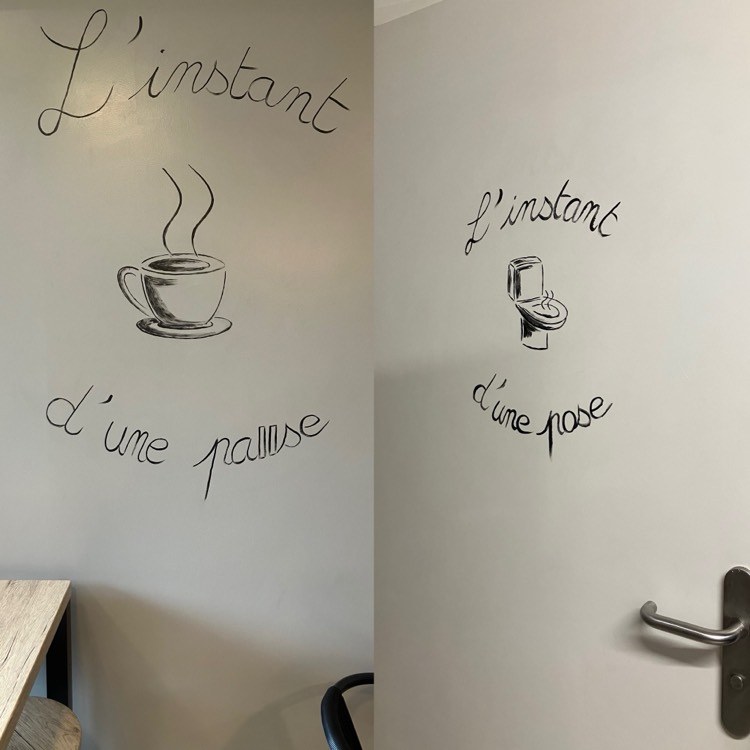 L'instant
d'une pause
L'instant
d'une pose